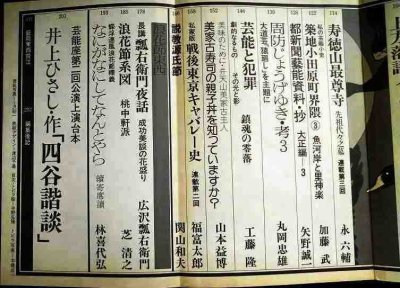 174 寿徳山最尊寺 先祖代々之墓 連載第三回 永六輔
築地小田原町界隈③ 魚河岸と里神楽 加藤武
都新聞藝能資料・抄 大正編—3 矢野誠一
周防じょうげゆき・考3 丸岡忠雄
大道芸
芸能と犯罪 その光と影 鎮魂の零落 工藤隆
美味のために
美家古寿司の親子丼を知っていますか? 山本益博
私家版 戦後東京キャバレー史 連載第二回 福富太郎
説教源氏節 関山和夫
長講 瓢右衛門夜話 成功美談の花盛り 広沢瓢右衛門
浪花節系図 桃中軒派 芝清之
なにがなにしてなんとやら 林喜代弘
201 芸能座第二回公演上演台本
井上ひさし・作「四谷諧談」
編集後記